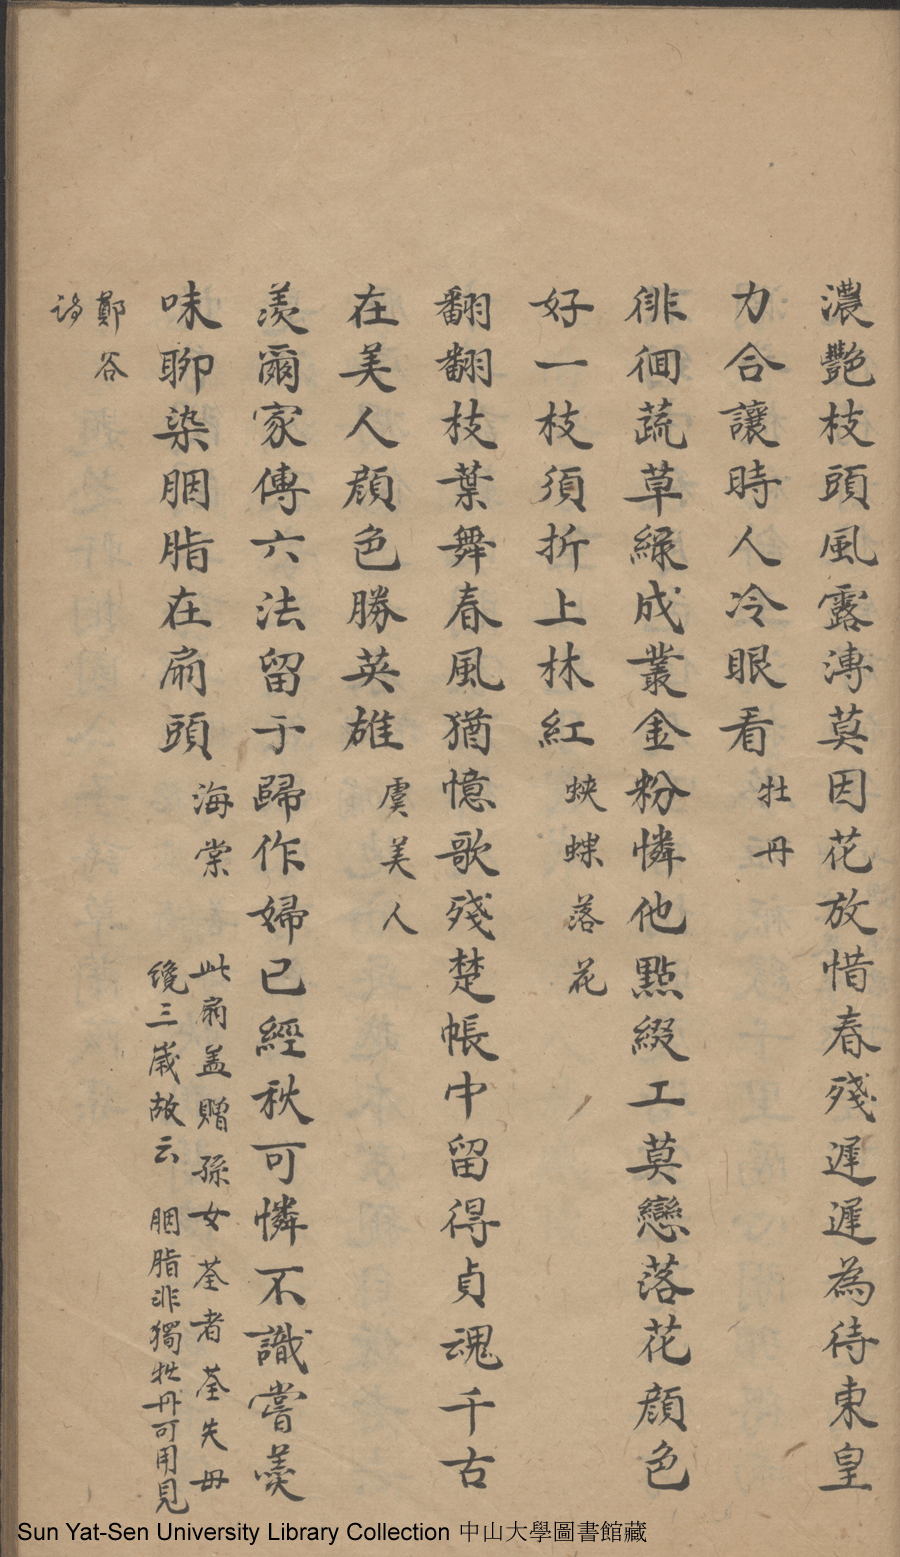 濃艷枝頭風露漙莫因花放惜春殘遲遲為待東皇
力合讓時人冷眼看 牡丹
徘徊蔬草綠成叢金粉憐他點綴工莫戀落花顏色
好一枝須折上林紅 蛺蝶落花
翻翻枝葉舞春風猶憶歌殘楚帳中留得貞魂千古
在美人顏色勝英雄 虞美人
羨爾家傳六法留于歸作婦已經秋可憐不識嘗羹
味聊染胭脂在扇頭 海棠 此扇盖贈孫女荃者荃失毋
纔三歲故云 胭脂非獨牡丹可用見
鄭谷
詩
Sun Yat-Sen University Library Collection 中山大學圖書館藏